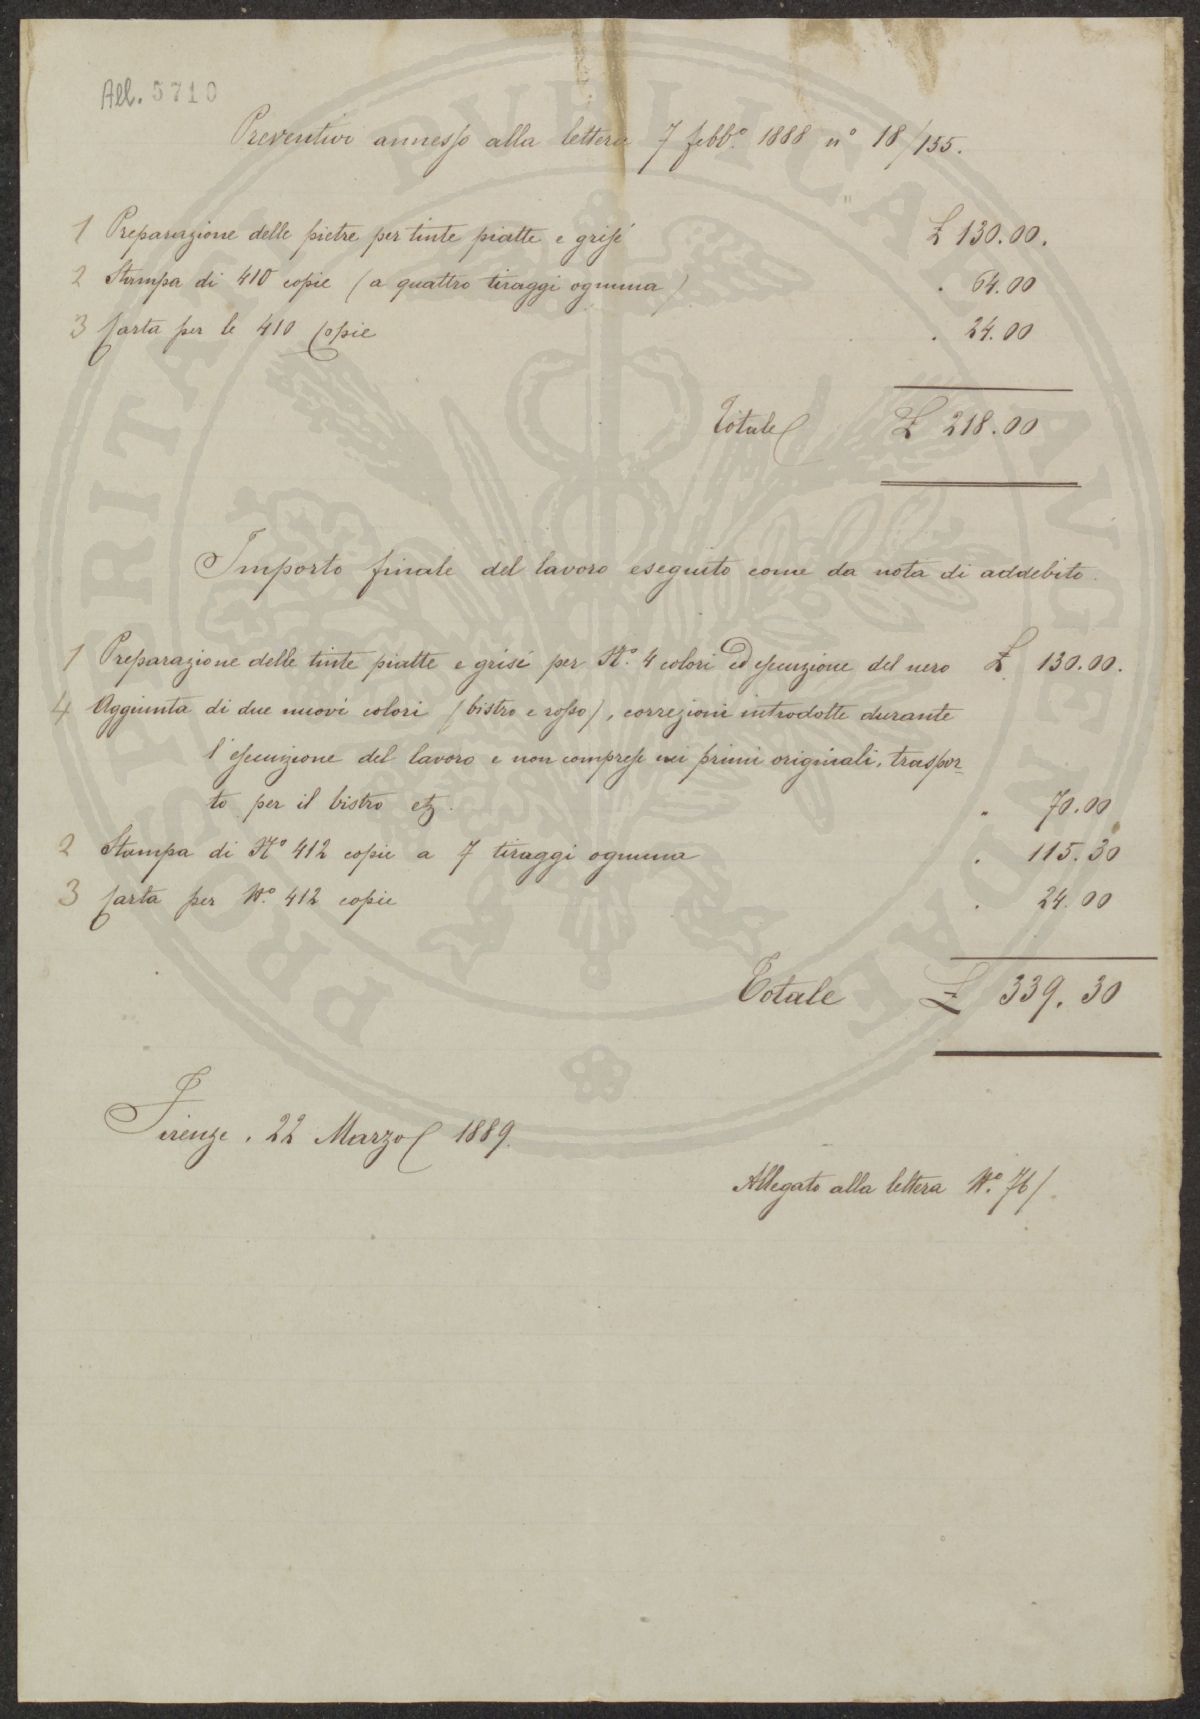 All. 5710
Preventivo annesso alla lettera 7 febb.º 1888 nº 18/155.
1 Preparazione delle pietre per tinte piatte e grisé £ 130.00.
2 Stampa di 410 copie (a quattro tiraggi ognuna) " 64.00
3 Carta per le 410 Copie " 24.00
Totale £ 218.00
Importo finale del lavoro eseguito come da nota di addebito.
1 Preparazione delle tinte piatte e grisé per Nº. 4 colori ed esecuzione del nero £ 130.00.
4 Aggiunta di due nuovi colori (bistro e rosso), correzioni introdotte durante
l'esecuzione del lavoro e non comprese nei primi originali, traspor-
to per il bistro etz. " 70.00
2 Stampa di Nº 412 copie a 7 tiraggi ognuna " 115.30
3 Carta per Nº. 412 copie " 24.00
Totale £ 339.30
Firenze, 22 Marzo 1889.
Allegato alla lettera Nº. 76/
PVBLICAE
PROSPERITATI
AVGENDAE